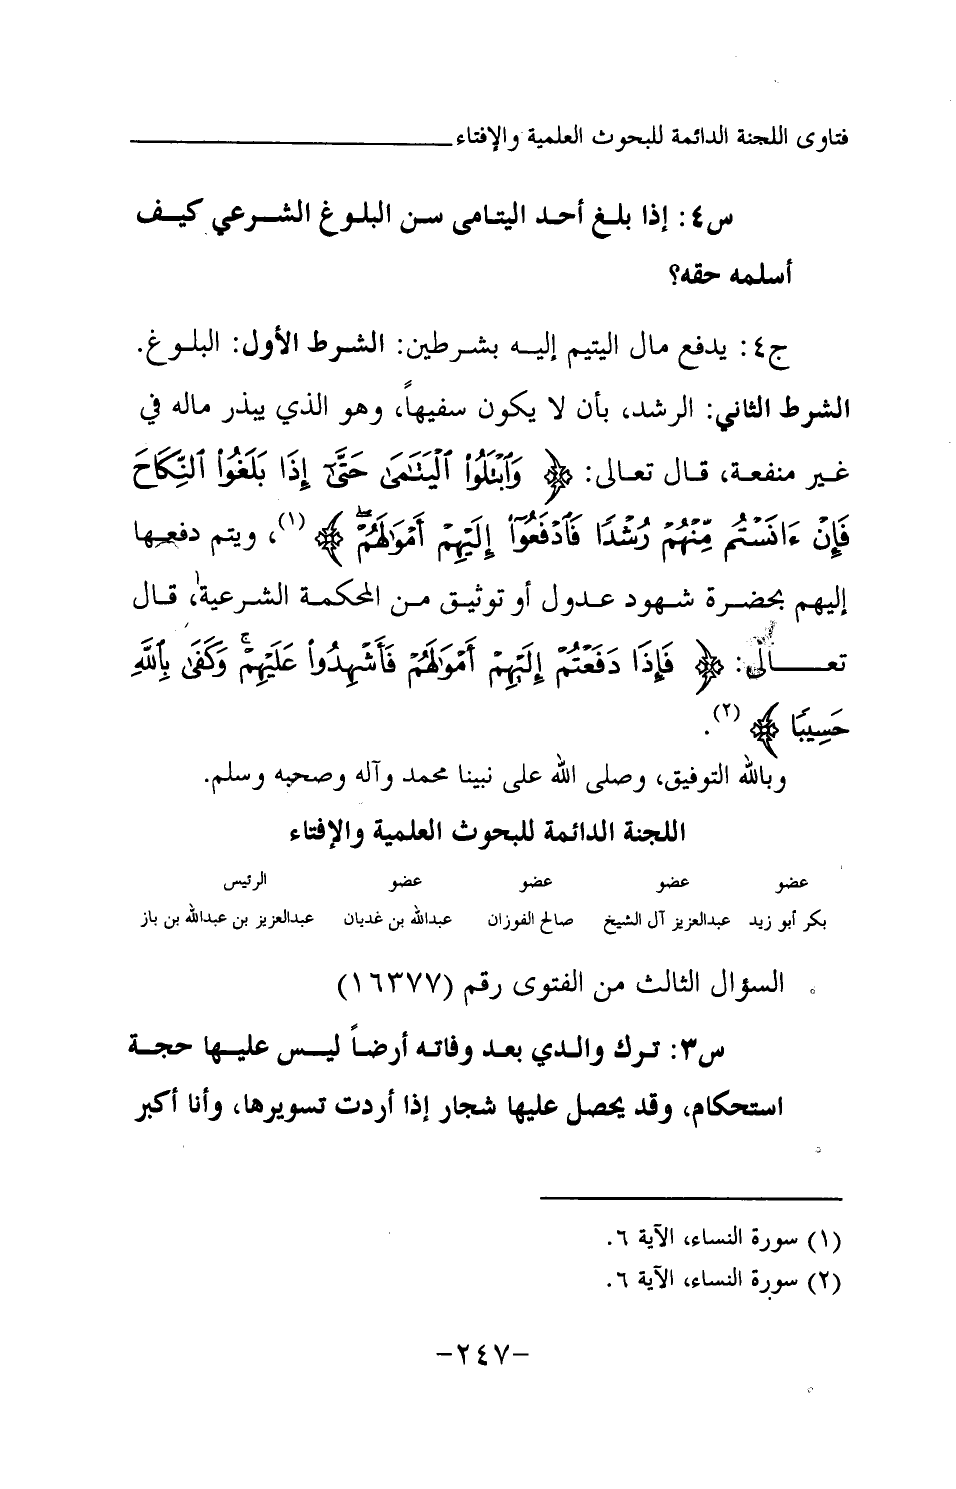 فتاوى اللجنة الدائمة للبحوث العلمية والإفتاء
س٤: إذا بلغ أحد اليتامى سن البلوغ الشرعي كيف
أسلمه حقه؟
ج٤: يدفع مال اليتيم إليه بشرطين: الشرط الأول: البلوغ.
الشرط الثاني: الرشد، بأن لا يكون سفيهاً، وهو الذي يبذر ماله في
غير منفعة، قال تعالى: ﴿ وَٱبْتَلُوا۟ ٱلْيَتَـٰمَىٰ حَتَّىٰٓ إِذَا بَلَغُوا۟ ٱلنِّكَاحَ
فَإِنْ ءَانَسْتُم مِّنْهُمْ رُشْدًا فَٱدْفَعُوٓا۟ إِلَيْهِمْ أَمْوَٰلَهُمْ ۖ ﴾ (١)، ويتم دفعها
إليهم بحضرة شهود عدول أو توثيق من المحكمة الشرعية، قال
تعالى: ﴿ فَإِذَا دَفَعْتُمْ إِلَيْهِمْ أَمْوَٰلَهُمْ فَأَشْهِدُوا۟ عَلَيْهِمْ ۚ وَكَفَىٰ بِٱللَّهِ
حَسِيبًا ﴾ (٢).
وبالله التوفيق، وصلى الله على نبينا محمد وآله وصحبه وسلم.
اللجنة الدائمة للبحوث العلمية والإفتاء
عضو عضو عضو عضو الرئيس
بكر أبو زيد عبدالعزيز آل الشيخ صالح الفوزان عبدالله بن غديان عبدالعزيز بن عبدالله بن باز
السؤال الثالث من الفتوى رقم (١٦٣٧٧)
س٣: ترك والدي بعد وفاته أرضاً ليس عليها حجة
استحكام، وقد يحصل عليها شجار إذا أردت تسويرها، وأنا أكبر
(١) سورة النساء، الآية ٦.
(٢) سورة النساء، الآية ٦.
-٢٤٧-